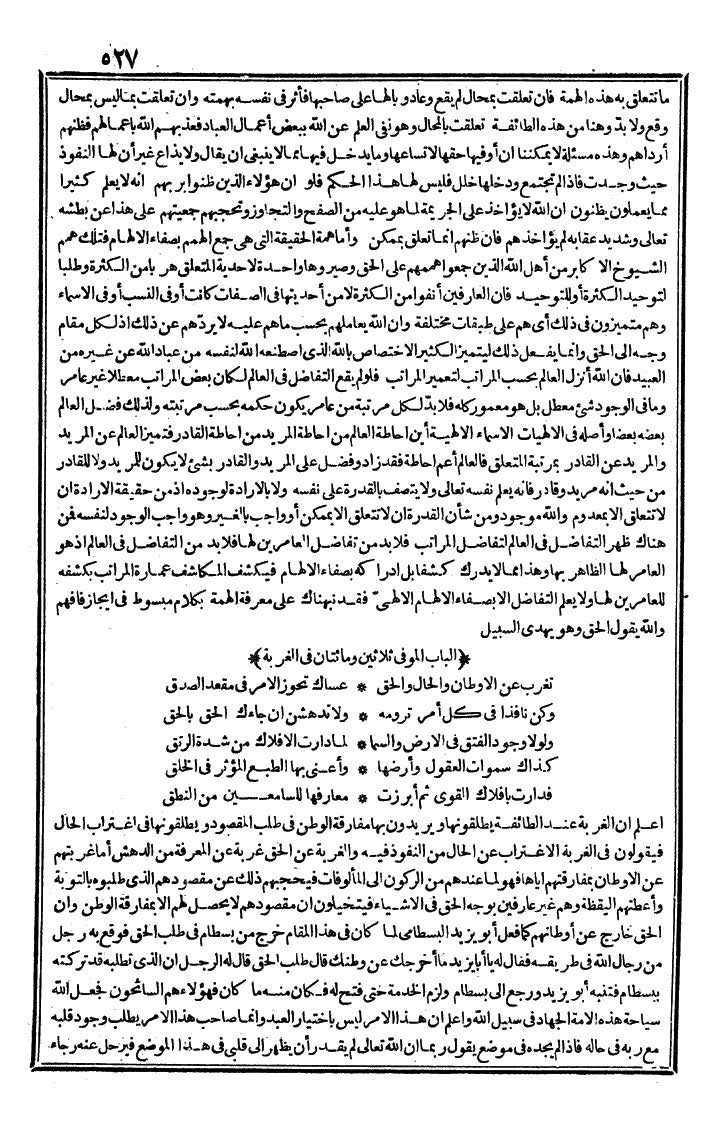 ٥٢٧
ما تتعلق به هذه الهمة فان تعلقت بمحال لم يقع وعاد وبالها على صاحبها فأثر فى نفسه بهمته وان تعلقت بما ليس بمحال
وقع ولا بد وهنا من هذه الطائفة تعلقت بالمحال وهو نفى العلم عن الله ببعض أعمال العباد فعذبهم الله باعمالهم فظنهم
أرداهم وهذه مسئلة لا يمكننا ان أوفيها حقها لاتساعها وما يدخل فيها مما لا ينبغى ان يقال ولا يذاع غير أن لها النفوذ
حيث وجدت فاذا لم تجتمع ودخلها خلل فليس لها هذا الحكم فلو ان هؤلاء الذين ظنوا بربهم انه لا يعلم كثيرا
مما يعملون يظنون ان الله لا يؤاخذ على الجريمة لما هو عليه من الصفح والتجاوز وتحجبهم جمعيتهم على هذا عن بطشه
تعالى وشديد عقابه لم يؤاخذهم فان ظنهم انما تعلق بممكن وأما همة الحقيقة التى هى جمع الهمم بصفاء الالهام فتلك همم
الشيوخ الاكابر من أهل الله الذين جمعوا هممهم على الحق وصيروها واحدة لاحدية المتعلق هربا من الكثرة وطلبا
لتوحيد الكثرة أو للتوحيد فان العارفين أنفوا من الكثرة لا من أحديتها فى الصفات كانت أو فى النسب أو فى الاسماء
وهم متميزون فى ذلك أى هم على طبقات مختلفة وان الله يعاملهم بحسب ما هم عليه لا يردهم عن ذلك اذ لكل مقام
وجه الى الحق وانما يفعل ذلك ليتميز الكثير الاختصاص بالله الذى اصطنعه الله لنفسه من عباد الله عن غيره من
العبيد فان الله أنزل العالم بحسب المراتب لتعمير المراتب فلو لم يقع التفاضل فى العالم لكان بعض المراتب معطلا غير عامر
وما فى الوجود شئ معطل بل هو معمور كله فلا بد لكل مرتبة من عامر يكون حكمه بحسب مرتبته ولذلك فضل العالم
بعضه بعضا وأصله فى الالهيات الاسماء الالهية أين احاطة العالم من احاطة المريد من احاطة القادر فتميز العالم عن المريد
والمريد عن القادر بمرتبة المتعلق فالعالم أعم احاطة فقد زاد وفضل على المريد والقادر بشئ لا يكون للمريد ولا للقادر
من حيث انه مريد وقادر فانه يعلم نفسه تعالى ولا يتصف بالقدرة على نفسه ولا بالارادة لوجوده اذ من حقيقة الارادة ان
لا تتعلق الا بمعدوم والله موجود ومن شأن القدرة ان لا تتعلق الا بممكن أو واجب بالغير وهو واجب الوجود لنفسه فمن
هناك ظهر التفاضل فى العالم لتفاضل المراتب فلا بد من تفاضل العامرين لها فلا بد من التفاضل فى العالم اذ هو
العامر لها الظاهر بها وهذا مما لا يدرك كشفا بل ادراكه بصفاء الالهام فيكشف المكاشف عمارة المراتب بكشفه
للعامرين لها ولا يعلم التفاضل الا بصفاء الالهام الالهىّ فقد نبهناك على معرفة الهمة بكلام مبسوط فى ايجاز فافهم
والله يقول الحق وهو يهدى السبيل
﴿الباب الموفى ثلاثين ومائتان فى الغربة﴾
تغرب عن الاوطان والحال والحق * عساك تحوز الامر فى مقعد الصدق
وكن نافذا فى كل أمر ترومه * ولا تدهشن ان جاءك الحق بالحق
ولولا وجود الفتق فى الارض والسما * لما دارت الافلاك من شدة الرتق
كذاك سموات العقول وأرضها * وأعنى بها الطبع المؤثر فى الخلق
فدارت بافلاك القوى ثم أبرزت * معارفها للسامعين من النطق
اعلم ان الغربة عند الطائفة يطلقونها ويريدون بها مفارقة الوطن فى طلب المقصود ويطلقونها فى اغتراب الحال
فيقولون فى الغربة الاغتراب عن الحال من النفوذ فيه والغربة عن الحق غربة عن المعرفة من الدهش أما غربتهم
عن الاوطان بمفارقتهم اياها فهو لما عندهم من الركون الى المألوفات فيحجبهم ذلك عن مقصودهم الذى طلبوه بالتوبة
وأعطتهم اليقظة وهم غير عارفين بوجه الحق فى الاشياء فيتخيلون ان مقصودهم لا يحصل لهم الا بمفارقة الوطن وان
الحق خارج عن أوطانهم كما فعل أبو يزيد البسطامى لما كان فى هذا المقام خرج من بسطام فى طلب الحق فوقع به رجل
من رجال الله فى طريقه فقال له يا أبا يزيد ما أخرجك عن وطنك قال طلب الحق قال له الرجل ان الذى تطلبه قد تركته
ببسطام فتنبه أبو يزيد ورجع الى بسطام ولزم الخدمة حتى فتح له فكان منه ما كان فهؤلاء هم السائحون فجعل الله
سياحة هذه الامة الجهاد فى سبيل الله واعلم ان هذا الامر ليس باختيار العبد وانما صاحب هذا الامر يطلب وجود قلبه
مع ربه فى حاله فاذا لم يجده فى موضع يقول ربما ان الله تعالى لم يقدر أن يظهر الى قلبى فى هذا الموضع فيرحل عنه رجاء